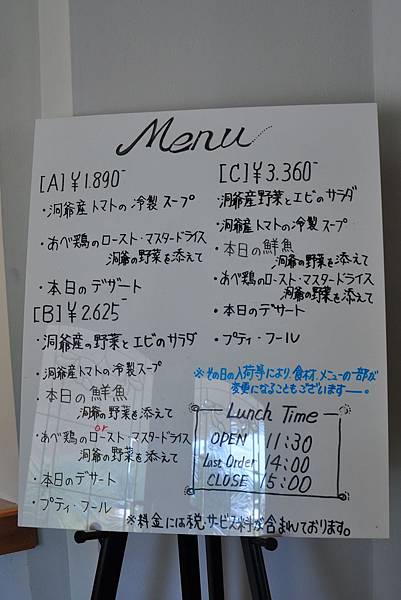 Menu
[A] ¥1.890-
・洞爺産トマトの冷製スープ
・あべ鶏のロースト・マスタードライス
洞爺の野菜を添えて
・本日のデザート
[B] ¥2.625-
・洞爺産の野菜とエビのサラダ
・洞爺産トマトの冷製スープ
・本日の鮮魚
洞爺の野菜を添えて
or
・あべ鶏のロースト・マスタードライス
洞爺の野菜を添えて
・本日のデザート
・プティ・フール
[C] ¥3.360-
・洞爺産野菜とエビのサラダ
・洞爺産トマトの冷製スープ
・本日の鮮魚
洞爺の野菜を添えて
・あべ鶏のロースト・マスタードライス
洞爺の野菜を添えて
・本日のデザート
・プティ・フール
※その日の入荷等により、食材、メニューの一部が
変更になることもございます―。
Lunch Time
OPEN 11:30
Last Order 14:00
CLOSE 15:00
※料金には税・サービス料が含まれております。